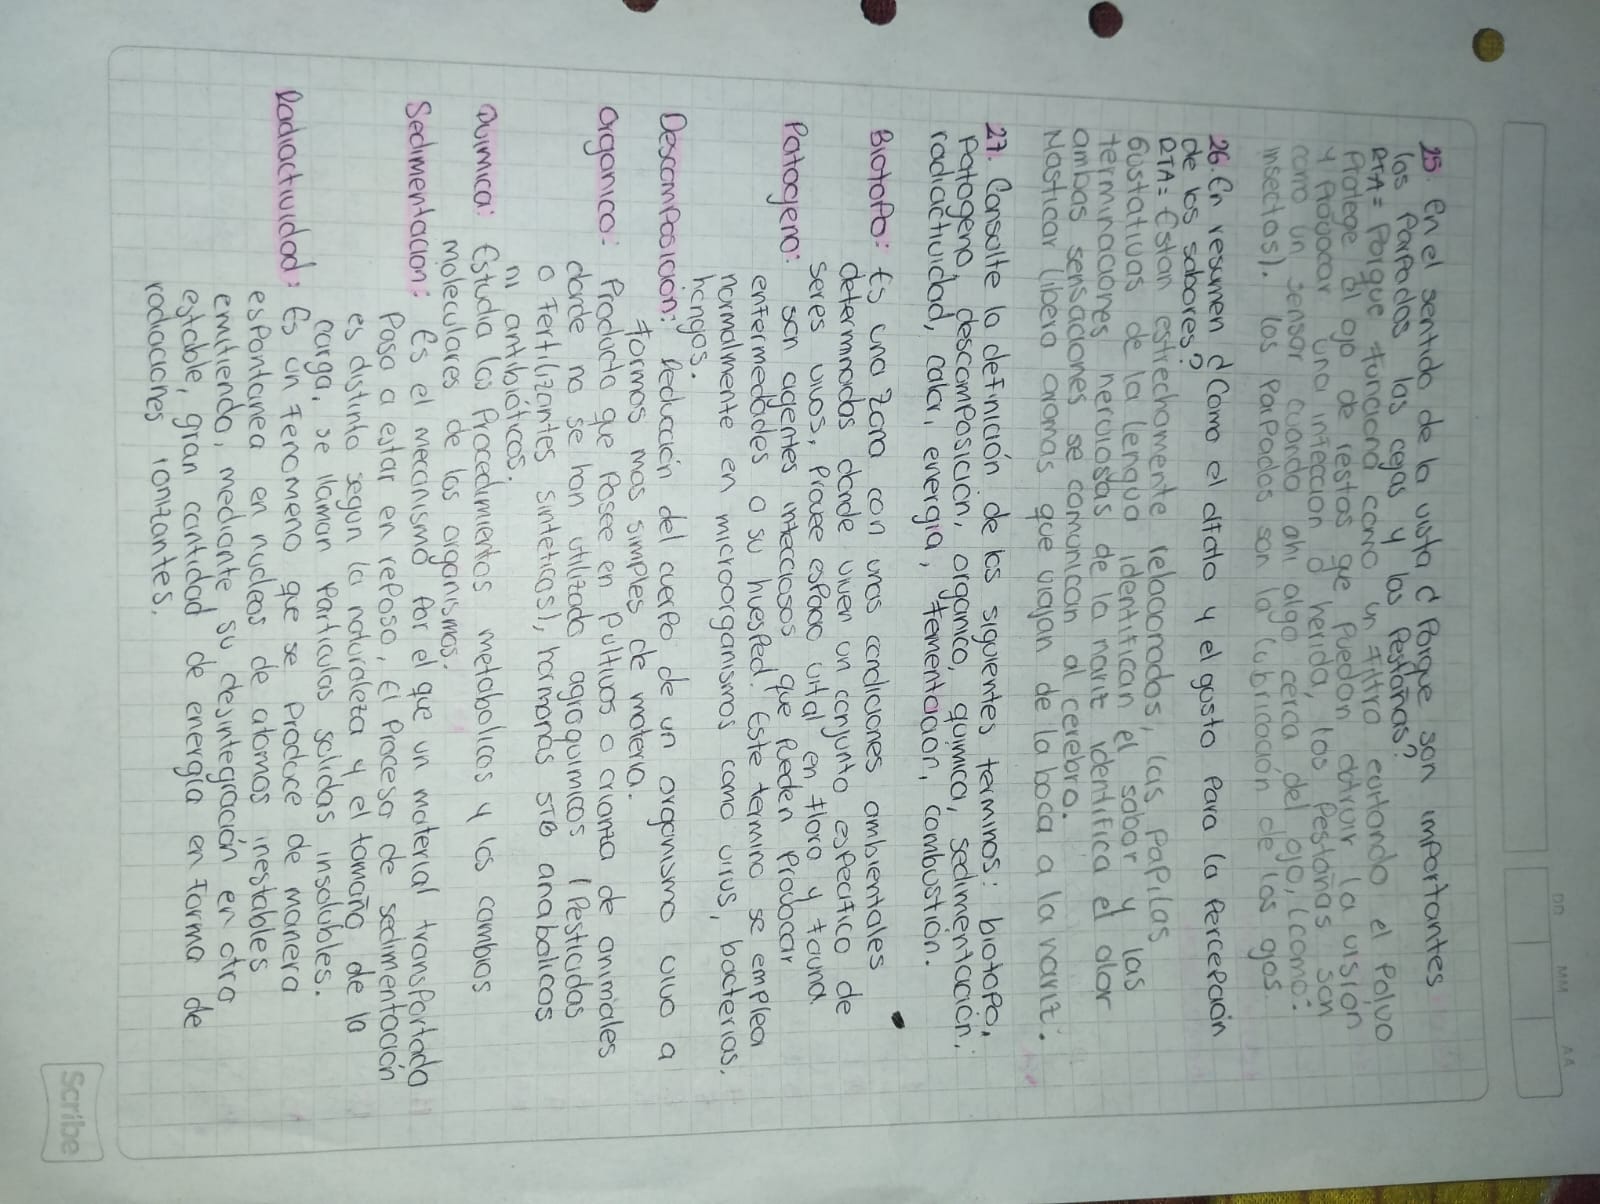 DD MM AA
25. En el sentido de la vista ¿Porque son importantes
los Parpados las cejas y las Pestañas?
RTA= Porque funciona como un filtro cortando el Polvo
Protege al ojo de restos qe Puedan obtruir la visión
y Provocar una infeccion o herida, las Pestañas son
como un sensor cuando ahi algo cerca del ojo, (como:
insectos). los Parpados son la lubricación de los ojos.
26. En resumen ¿Como el olfato y el gusto Para la Percepción
de los sabores?
RTA= Estan estrechamente relacionados, las papilas
Gustativas de la lengua identifican el sabor y las
terminaciones nerviosas de la nariz identifica el olor
ambas sensaciones se comunican al cerebro.
Masticar libera aromas que viajan de la boca a la nariz.
27. Consulte la definición de los siguientes terminos: biotopo,
Patogeno, descomposicion, organico, quimica, sedimentacion,
radiactividad, calor, energia, fermentacion, combustion.
Biotopo: Es una zona con unas condiciones ambientales
determinadas donde viven un conjunto especifico de
seres vivos, Provee espacio vital en flora y fauna
Patogeno: son agentes infecciosos que Pueden Probocar
enfermedades o su huesPed. Este termino se emplea
normalmente en microorganismos como virus, bacterias,
hongos.
Descomposicion: Reducción del cuerpo de un organismo vivo a
formas mas simples de materia.
Organico: Producto que Posee en pultivos o crianza de animales
donde no se han utilizado agroquimicos (Pesticidas
o Fertilizantes sinteticos), hormonas anabolicas
ni antibióticos.
Quimica: Estudia los Procedimientos metabolicos y los cambios
moleculares de los organismos.
Sedimentacion: Es el mecanismo Por el que un material transportado
Pasa a estar en reposo, El Proceso de sedimentación
es distinto segun la naturaleza y el tamaño de la
carga, se llaman Particulas solidas insolubles.
Radiactividad: Es un fenomeno qe se Produce de manera
espontanea en nucleos de atomos inestables
emitiendo, mediante su desintegración en otro
estable, gran cantidad de energia en forma de
radiaciones ionizantes.
Scribe